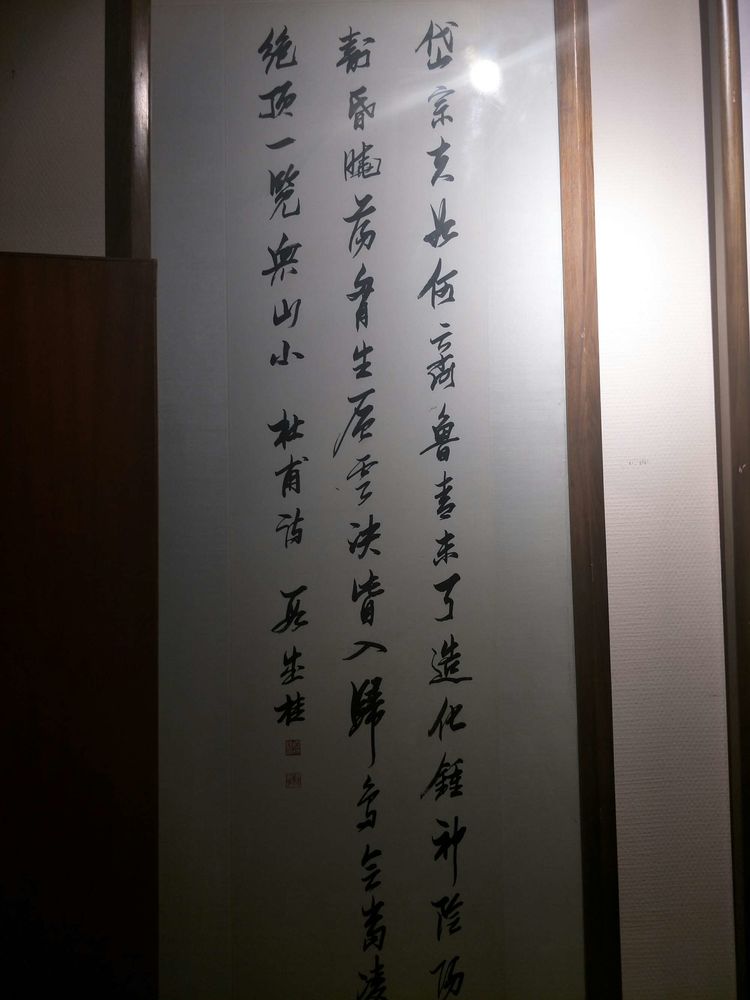 岱宗夫如何齊魯青未了造化鍾神陰陽
割昏曉蕩胷生层雲决眥入歸鳥会當凌
绝顶一覽衆山小 杜甫诗 段成桂